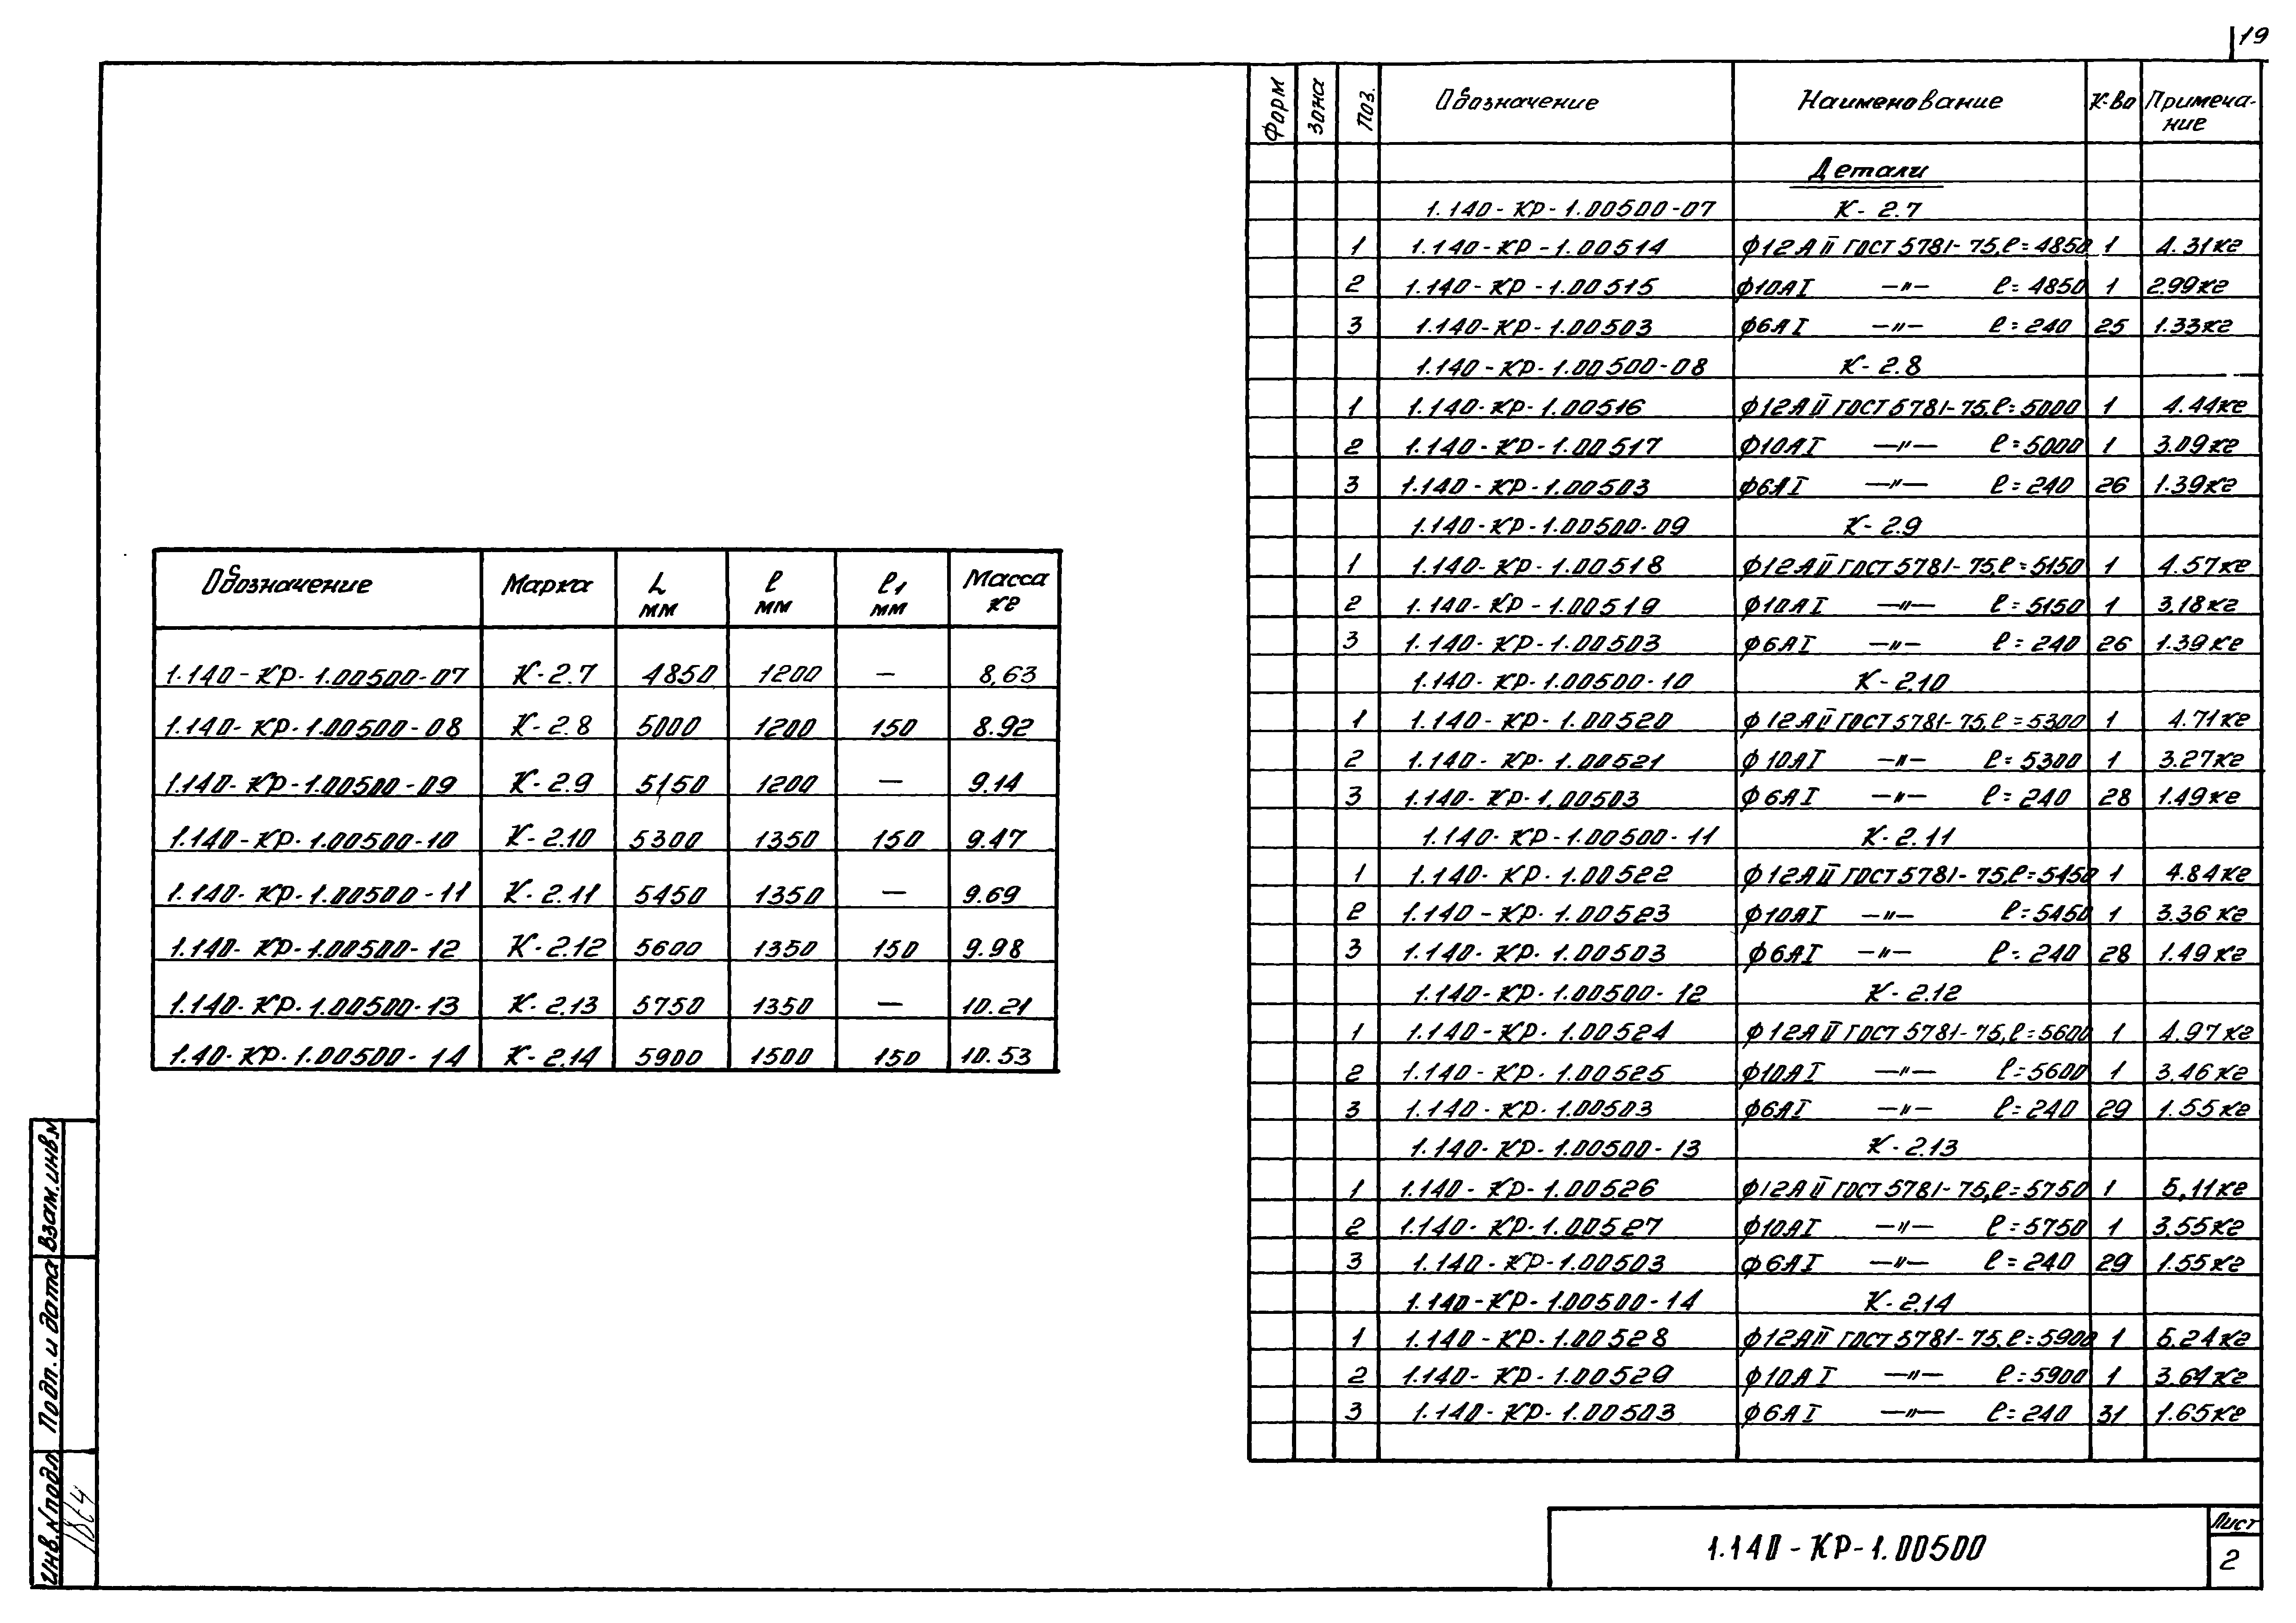 19
Обозначение Марка L мм ℓ мм ℓ1 мм Масса кг
1.140-КР-1.00500-07 К-2.7 4850 1200 — 8,63
1.140-КР-1.00500-08 К-2.8 5000 1200 150 8.92
1.140-КР-1.00500-09 К-2.9 5150 1200 — 9.14
1.140-КР-1.00500-10 К-2.10 5300 1350 150 9.47
1.140-КР-1.00500-11 К-2.11 5450 1350 — 9.69
1.140-КР-1.00500-12 К-2.12 5600 1350 150 9.98
1.140-КР-1.00500-13 К-2.13 5750 1350 — 10.21
1.40-КР-1.00500-14 К-2.14 5900 1500 150 10.53
Форм Зона Поз. Обозначение Наименование К-во Примеча-
ние
Детали
1.140-КР-1.00500-07 К-2.7
1 1.140-КР-1.00514 ф12АII ГОСТ 5781-75, ℓ=4850 1 4.31кг
2 1.140-КР-1.00515 ф10АI —"— ℓ=4850 1 2.99кг
3 1.140-КР-1.00503 ф6АI —"— ℓ=240 25 1.33кг
1.140-КР-1.00500-08 К-2.8
1 1.140-КР-1.00516 ф12АII ГОСТ 5781-75, ℓ=5000 1 4.44кг
2 1.140-КР-1.00517 ф10АI —"— ℓ=5000 1 3.09кг
3 1.140-КР-1.00503 ф6АI —"— ℓ=240 26 1.39кг
1.140-КР-1.00500-09 К-2.9
1 1.140-КР-1.00518 ф12АII ГОСТ 5781-75, ℓ=5150 1 4.57кг
2 1.140-КР-1.00519 ф10АI —"— ℓ=5150 1 3.18кг
3 1.140-КР-1.00503 ф6АI —"— ℓ=240 26 1.39кг
1.140-КР-1.00500-10 К-2.10
1 1.140-КР-1.00520 ф12АII ГОСТ 5781-75, ℓ=5300 1 4.71кг
2 1.140-КР-1.00521 ф10АI —"— ℓ=5300 1 3.27кг
3 1.140-КР-1.00503 ф6АI —"— ℓ=240 28 1.49кг
1.140-КР-1.00500-11 К-2.11
1 1.140-КР-1.00522 ф12АII ГОСТ 5781-75, ℓ=5450 1 4.84кг
2 1.140-КР-1.00523 ф10АI —"— ℓ=5450 1 3.36кг
3 1.140-КР-1.00503 ф6АI —"— ℓ=240 28 1.49кг
1.140-КР-1.00500-12 К-2.12
1 1.140-КР-1.00524 ф12АII ГОСТ 5781-75, ℓ=5600 1 4.97кг
2 1.140-КР-1.00525 ф10АI —"— ℓ=5600 1 3.46кг
3 1.140-КР-1.00503 ф6АI —"— ℓ=240 29 1.55кг
1.140-КР-1.00500-13 К-2.13
1 1.140-КР-1.00526 ф12АII ГОСТ 5781-75, ℓ=5750 1 5,11кг
2 1.140-КР-1.00527 ф10АI —"— ℓ=5750 1 3.55кг
3 1.140-КР-1.00503 ф6АI —"— ℓ=240 29 1.55кг
1.140-КР-1.00500-14 К-2.14
1 1.140-КР-1.00528 ф12АII ГОСТ 5781-75, ℓ=5900 1 5.24кг
2 1.140-КР-1.00529 ф10АI —"— ℓ=5900 1 3.64кг
3 1.140-КР-1.00503 ф6АI —"— ℓ=240 31 1.65кг
Взам.инв.N
Подп. и дата
Инв.N подл
1.140-КР-1.00500
Лист
2